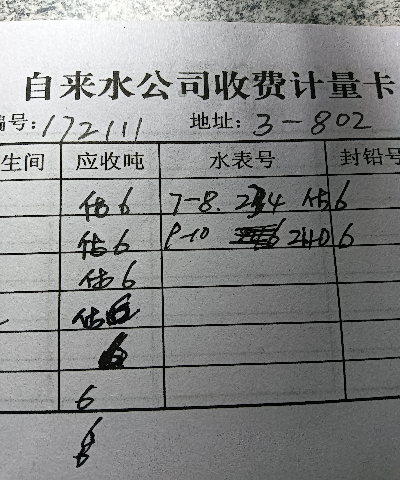 自来水公司收费计量卡
编号:172111 地址:3-802
生间 应收吨 水表号 封铅号
估6 7-8. 234 估6
估6 9-10 2406
估6
估6
6
6
6